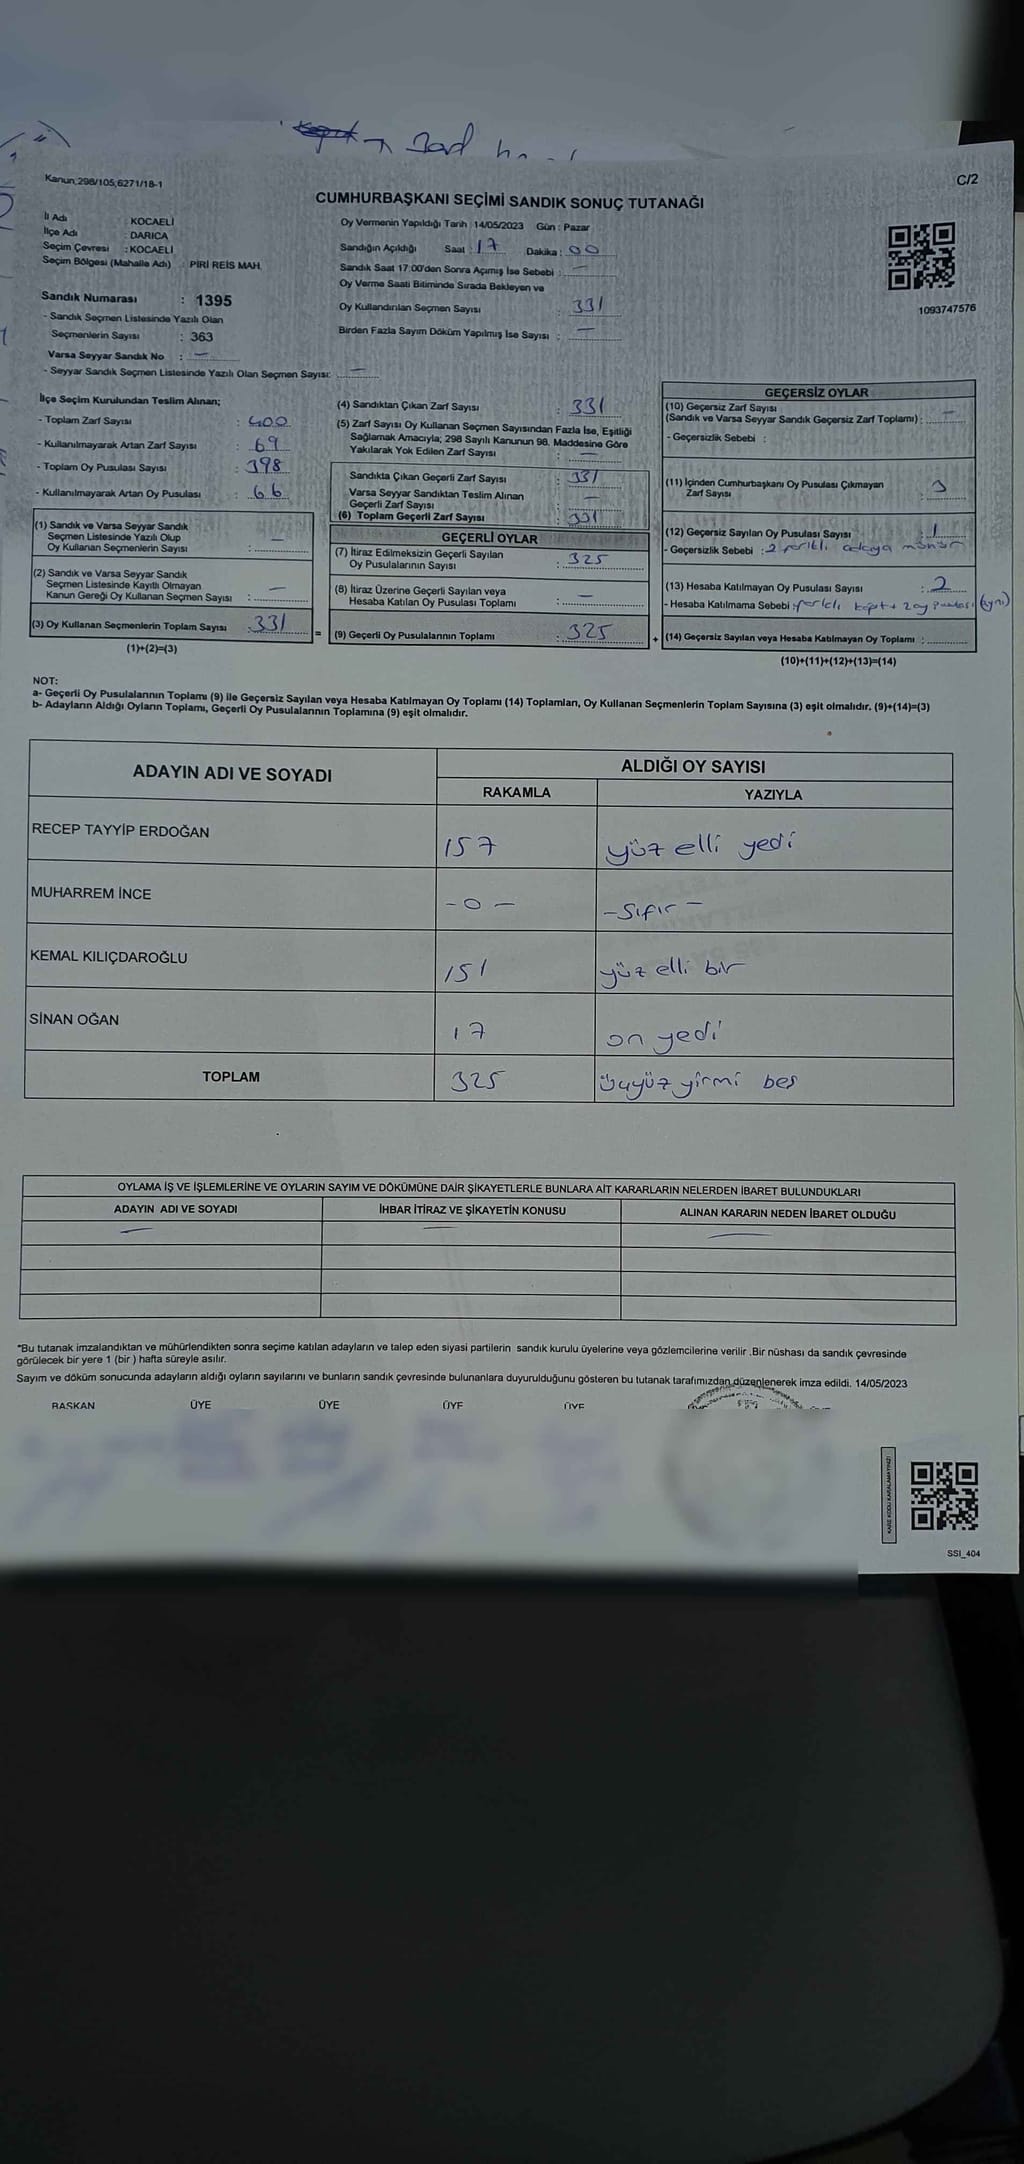 Kanun;298/105;6271/18-1
C/2
CUMHURBAŞKANI SEÇİMİ SANDIK SONUÇ TUTANAĞI
İl Adı : KOCAELİ
İlçe Adı : DARICA
Seçim Çevresi : KOCAELİ
Seçim Bölgesi (Mahalle Adı) : PİRİ REİS MAH.
Sandık Numarası : 1395
- Sandık Seçmen Listesinde Yazılı Olan
Seçmenlerin Sayısı : 363
Varsa Seyyar Sandık No : —
- Seyyar Sandık Seçmen Listesinde Yazılı Olan Seçmen Sayısı: —
Oy Vermenin Yapıldığı Tarih : 14/05/2023 Gün : Pazar
Sandığın Açıldığı Saat : 17 Dakika : 00
Sandık Saat 17:00'den Sonra Açımış İse Sebebi : —
Oy Verme Saati Bitiminde Sırada Bekleyen ve
Oy Kullandırılan Seçmen Sayısı : 331
Birden Fazla Sayım Döküm Yapılmış İse Sayısı : —
1093747576
İlçe Seçim Kurulundan Teslim Alınan;
- Toplam Zarf Sayısı : 400
- Kullanılmayarak Artan Zarf Sayısı : 69
- Toplam Oy Pusulası Sayısı : 398
- Kullanılmayarak Artan Oy Pusulası : 66
(1) Sandık ve Varsa Seyyar Sandık
Seçmen Listesinde Yazılı Olup
Oy Kullanan Seçmenlerin Sayısı : —
(2) Sandık ve Varsa Seyyar Sandık
Seçmen Listesinde Kayıtlı Olmayan
Kanun Gereği Oy Kullanan Seçmen Sayısı : —
(3) Oy Kullanan Seçmenlerin Toplam Sayısı : 331
(1)+(2)=(3)
=
(4) Sandıktan Çıkan Zarf Sayısı : 331
(5) Zarf Sayısı Oy Kullanan Seçmen Sayısından Fazla İse, Eşitliği
Sağlamak Amacıyla; 298 Sayılı Kanunun 98. Maddesine Göre
Yakılarak Yok Edilen Zarf Sayısı : —
Sandıkta Çıkan Geçerli Zarf Sayısı : 331
Varsa Seyyar Sandıktan Teslim Alınan
Geçerli Zarf Sayısı : —
(6) Toplam Geçerli Zarf Sayısı : 331
GEÇERLİ OYLAR
(7) İtiraz Edilmeksizin Geçerli Sayılan
Oy Pusulalarının Sayısı : 325
(8) İtiraz Üzerine Geçerli Sayılan veya
Hesaba Katılan Oy Pusulası Toplamı : —
(9) Geçerli Oy Pusulalarının Toplamı : 325
+
GEÇERSİZ OYLAR
(10) Geçersiz Zarf Sayısı
(Sandık ve Varsa Seyyar Sandık Geçersiz Zarf Toplamı) : —
- Geçersizlik Sebebi :
(11) İçinden Cumhurbaşkanı Oy Pusulası Çıkmayan
Zarf Sayısı : 3
(12) Geçersiz Sayılan Oy Pusulası Sayısı : 1
- Geçersizlik Sebebi : 2 farklı adaya mühür
(13) Hesaba Katılmayan Oy Pusulası Sayısı : 2
- Hesaba Katılmama Sebebi : oy pusulası (aynı)
(14) Geçersiz Sayılan veya Hesaba Katılmayan Oy Toplamı :
(10)+(11)+(12)+(13)=(14)
NOT:
a- Geçerli Oy Pusulalarının Toplamı (9) ile Geçersiz Sayılan veya Hesaba Katılmayan Oy Toplamı (14) Toplamları, Oy Kullanan Seçmenlerin Toplam Sayısına (3) eşit olmalıdır. (9)+(14)=(3)
b- Adayların Aldığı Oyların Toplamı, Geçerli Oy Pusulalarının Toplamına (9) eşit olmalıdır.
ADAYIN ADI VE SOYADI
ALDIĞI OY SAYISI
RAKAMLA YAZIYLA
RECEP TAYYİP ERDOĞAN 157 yüz elli yedi
MUHARREM İNCE -0- -Sıfır-
KEMAL KILIÇDAROĞLU 151 yüz elli bir
SİNAN OĞAN 17 on yedi
TOPLAM 325 üçyüz yirmi beş
OYLAMA İŞ VE İŞLEMLERİNE VE OYLARIN SAYIM VE DÖKÜMÜNE DAİR ŞİKAYETLERLE BUNLARA AİT KARARLARIN NELERDEN İBARET BULUNDUKLARI
ADAYIN ADI VE SOYADI İHBAR İTİRAZ VE ŞİKAYETİN KONUSU ALINAN KARARIN NEDEN İBARET OLDUĞU
— — —
*Bu tutanak imzalandıktan ve mühürlendikten sonra seçime katılan adayların ve talep eden siyasi partilerin sandık kurulu üyelerine veya gözlemcilerine verilir .Bir nüshası da sandık çevresinde
görülecek bir yere 1 (bir ) hafta süreyle asılır.
Sayım ve döküm sonucunda adayların aldığı oyların sayılarını ve bunların sandık çevresinde bulunanlara duyurulduğunu gösteren bu tutanak tarafımızdan düzenlenerek imza edildi. 14/05/2023
BAŞKAN ÜYE ÜYE ÜYE ÜYE
KARE KODU KARALAMAYINIZ!
SSI_404